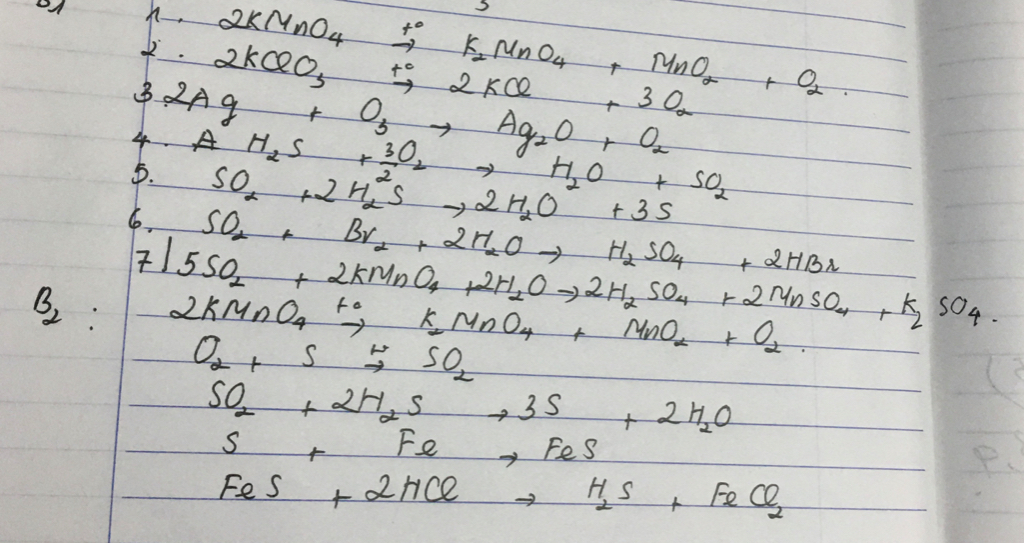 B1 1. 2KMnO₄ t° → K₂MnO₄ + MnO₂ + O₂.
2. 2KClO₃ t° → 2KCl + 3O₂
3. 2Ag + O₃ → Ag₂O + O₂
4. H₂S + 3/2 O₂ → H₂O + SO₂
5. SO₂ + 2H₂S → 2H₂O + 3S
6. SO₂ + Br₂ + 2H₂O → H₂SO₄ + 2HBr
7/ 5SO₂ + 2KMnO₄ + 2H₂O → 2H₂SO₄ + 2MnSO₄ + K₂SO₄.
B₂: 2KMnO₄ t° → K₂MnO₄ + MnO₂ + O₂.
O₂ + S t° → SO₂
SO₂ + 2H₂S → 3S + 2H₂O
S + Fe → FeS
FeS + 2HCl → H₂S + FeCl₂